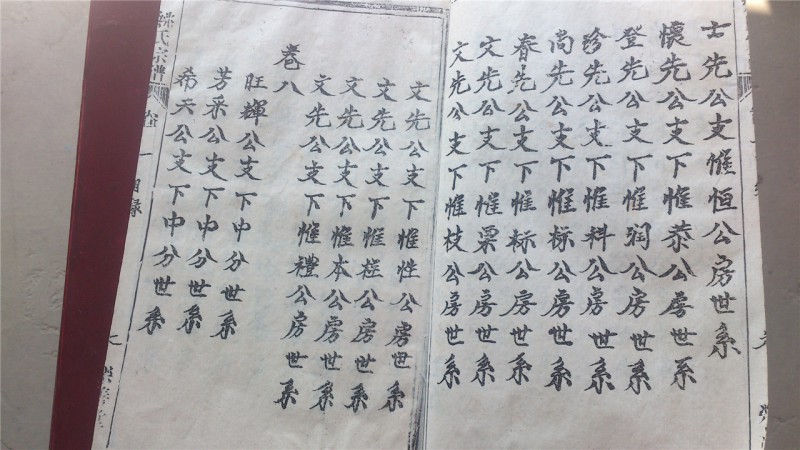 士先公支下惟恒公房世系
懷先公支下惟恭公房世系
登先公支下惟润公房世系
珍先公支下惟科公房世系
尚先公支下惟标公房世系
春先公支下惟标公房世系
文先公支下惟栗公房世系
文先公支下惟枝公房世系
文先公支下惟性公房世系
文先公支下惟桂公房世系
文先公支下惟本公房世系
文先公支下惟禮公房世系
卷八
旺輝公支下中分世系
芳采公支下中分世系
希天公支下中分世系
氏宗譜
卷一
目録
堂